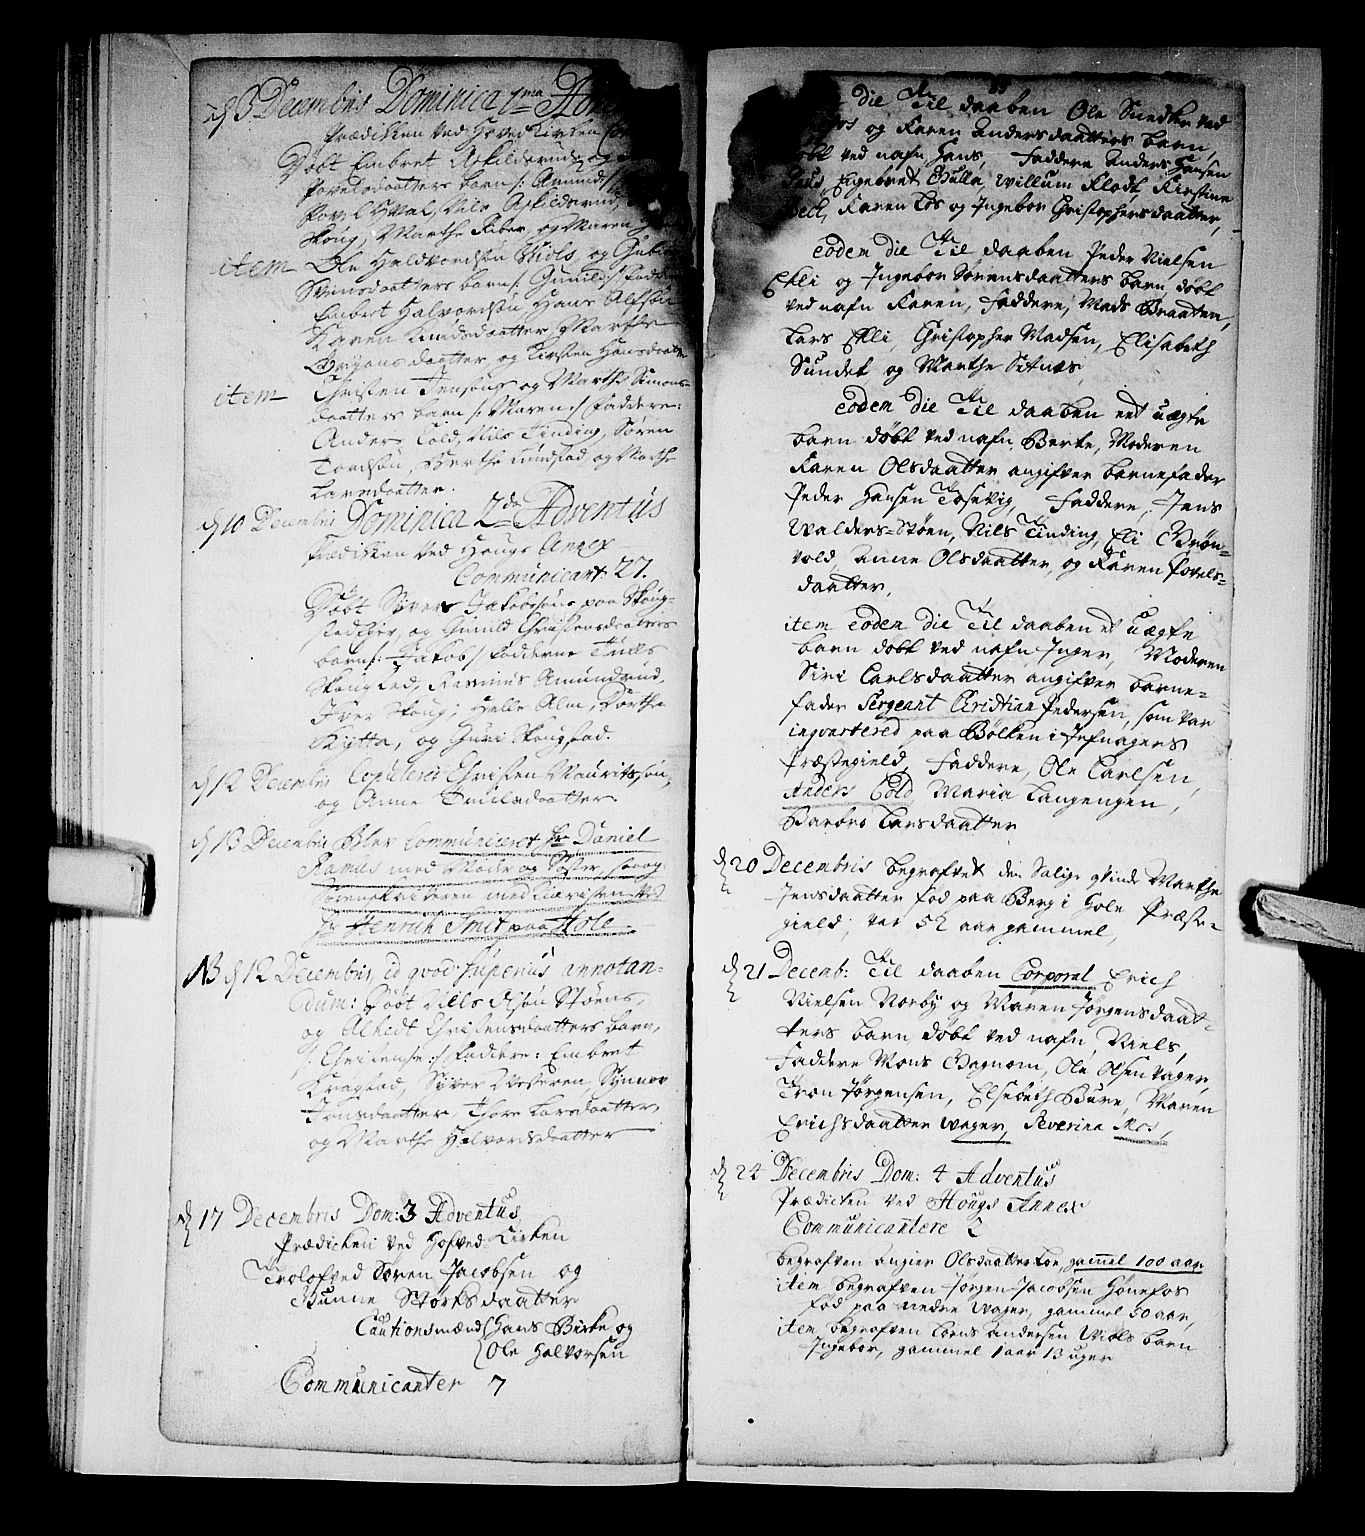 d 3 Decembris Dominica 1ma Adv
Prædiken ved Hoved Kirken
Døbt Embret Askildsruds og
Povelsdaatters barn /: Amund :/
Povel Hval, Nils Askildsrud,
Skoug, Marthe Fiber, og Maren
item Ole Haldvordsøn Wiols, og Gubiør
Svensdaatters barn /: Gunild :/ Faddere
Embret Halvordsøn, Hans Alfsøn
Karen Knudsdaatter, Marthe
Brynnsdaatter og Kirsten Hansdaatter
item Christen Jensøns og Marthe Simons-
daatters barn /: Maren :/ Faddere:
Anders Cold, Nils Tinding, Søren
Tordsøn, Berthe Kundstad og Marthe
Larsdaatter.
d 10 Decembris Dominica 2da Adventus
Prædiken ved Hougs Annex
Communicant 27.
Døbt Syver Jakobsøns paa Skoug-
stad Eger, og Gunild Christensdaatters
barn /: Jakob :/ Fadderne Truls
Skougstad, Rasmus Amundrud,
Iver Skoug, Helle Alm, Dorthe
Kytta, og Guri Skougstad.
d 12 Decembris Copuleret Christen Mauritssøn,
og Anne Truulsdaatter
d 13 Decembris Blev Communiceret Hr Daniel
Ramus med Moder og Søster, saa og
med Kieristen ved
Hr Henrich Smit paa Hole.
NB d 12 Decembris, id qvod superius annotan-
dum: Døbt Nills Olsøn Støens,
og Alhedt Christensdaatters barn,
/: Christense :/ Faddere: Embret
Kragstad, Syver Loeseren, Synnev
Jonsdaatter, Thore Larsdaatter
og Marthe Halvorsdaatter
d 17 Decembris Dom: 3 Adventus
Prædicken ved Hofved Kirken
Trolofved Søren Jacobsen og
Gunne Størksdaatter
Cautionsmænd Hans Birke og
Ole Halvorsen
Communicanter 7
die Til daaben Ole Snedker ved
fos og Karen Andersdaatters barn,
døbt ved nafn Hans, Faddere Anders Hansen
Engebret Gulla, Willum Flodt, Kirstine
Beck, Karen Løs og Ingebor Christophersdaatter,
eodem die Til daaben Peder Nielsen
Ekli og Ingebor Sørensdaatters barn, døbt
ved nafn Karen, Faddere, Mads Braaten,
Lars Ekli, Christopher Madsen, Elisabeth
Sundet og Marthe Setnæs
eodem die Til daaben eet uægte
barn døbt ved nafn Berte, Moderen
Karen Olsdaatter angifver barnefader
Peder Hansen Tosevig, Faddere, Jens
Walders-Støen, Nils Tinding, Eli Grøn-
vold, Anne Olsdaatter, og Karen Povels-
daatter,
item eodem die Til daaben et uægte
barn døbt ved nafn Inger, Moderen
Siri Carlsdaatter angifver barne-
fader Sergeant Christian Pedersen, som var
inqvartered paa Bølken i Jefnagers
Præstegield, Faddere, Ole Carlsen,
Anders Cold, Maria Langengen,
Barbro Larsdaatter
d 20 Decembris begrafvet den Salige qvinde Marthe
Jensdaatter fød paa Berg i Hole Præste-
gield, var 52 aar gammel,
d 21 Decemb: Til daaben Corporal Erich
Nielsen Norby og Maren Jørgensdaat-
ters barn døbt ved nafn, Niels,
Faddere Mons Bagnom, Ole Olsen Vager,
Tron Jørgensen, Elsebeth Bure, Maren
Erichsdaatter Wager, Severina Mos,
d 24 Decembris Dom: 4 Adventus
Prædicken ved Hougs Annex
Communicantere 2
begrafven Angier Olsdaatter Løe, gammel 100 aar
item begrafven Jørgen Jacobsen Hønefos
fød paa nedre Wager, gammel 50 aar,
item begrafven Torns Andersen Wiols barn
Ingebor, gammel 1 aar 13 uger